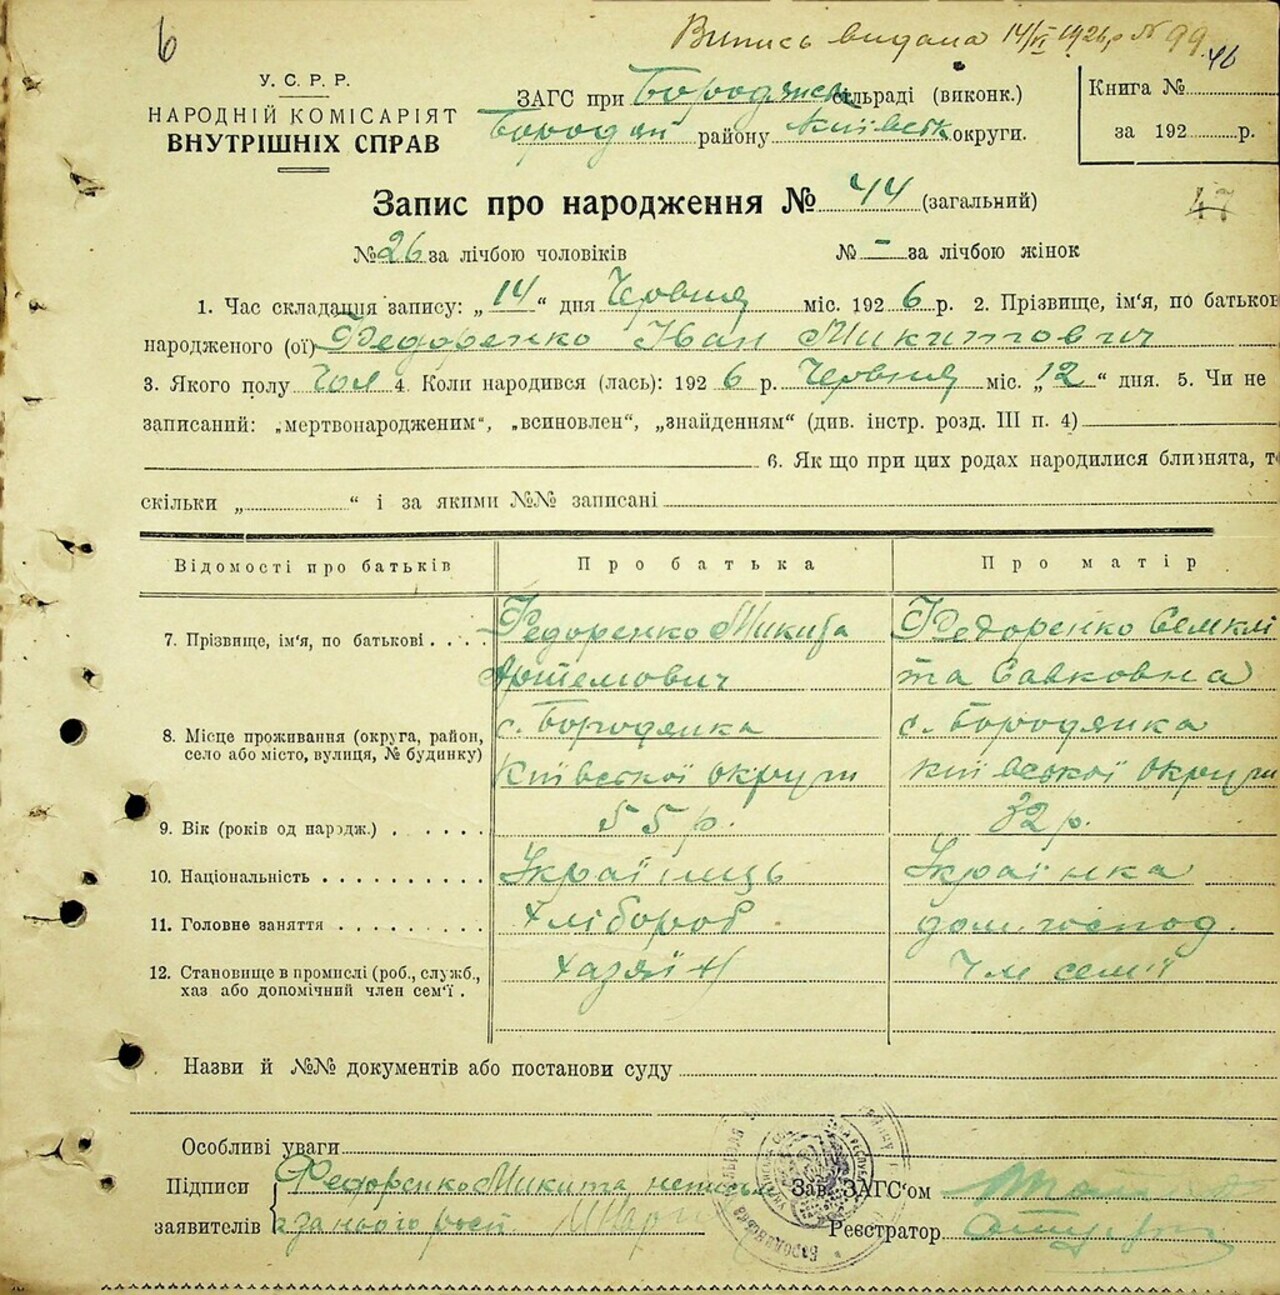 6
Випись видана 14/VI 1926 р № 99
46
У. С. Р. Р.
НАРОДНІЙ КОМІСАРІЯТ
ВНУТРІШНІХ СПРАВ
ЗАГС при Бородянск сільраді (виконк.)
Бородян району Київськ округи.
Книга №
за 192 р.
Запис про народження № 44 (загальний)
47
№ 26 за лічбою чоловіків № - за лічбою жінок
1. Час складання запису: „ 14 “ дня Червня міс. 192 6 р. 2. Прізвище, ім'я, по батькові
народженого (ої) Федоренко Іван Микитович
3. Якого полу Чол 4. Коли народився (лась): 192 6 р. Червня міс. „ 12 “ дня. 5. Чи не
записаний: „мертвонародженим“, „всиновлен“, „знайденням“ (див. інстр. розд. III п. 4)
6. Як що при цих родах народилися близнята, т
скільки „ “ і за якими №№ записані
Відомості про батьків Про батька Про матір
7. Прізвище, ім'я, по батькові . . . . Федоренко Микита Федоренко Семклі
Артемович та Савковна
8. Місце проживання (округа, район, с. Бородянка с. Бородянка
село або місто, вулиця, № будинку) Київської округи Київської округи
9. Вік (років од народж.) . . . . . 55 р. 32 р.
10. Національність . . . . . . . . . . Українць Українка
11. Головне заняття . . . . . . . . . Хлібороб дом. господ.
12. Становище в промислі (роб., служб., Хазяїн Чл семії
хаз або допомічний член сем'ї .
Назви й №№ документів або постанови суду
Особливі уваги
Підписи Федоренко Микита Зав. ЗАГС'ом
заявителів за нього росп. Реєстратор